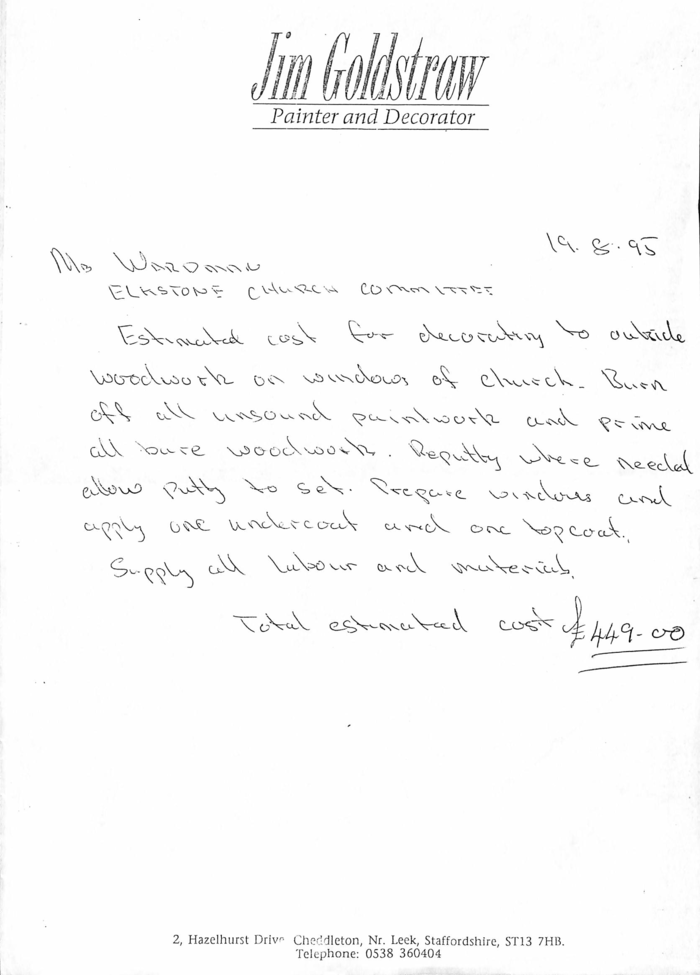 Jim Goldstraw
Painter and Decorator
19. 8. 95
ELKSTONE CHURCH COMMITTEE
Estimated cost for decorating to outside
woodwork on windows of church. Burn
off all unsound paintwork and prime
all bare woodwork. Reputty where needed
allow putty to set. Prepare windows and
apply one undercoat and one topcoat.
Supply all labour and materials.
Total estimated cost £449-00
2, Hazelhurst Drive Cheddleton, Nr. Leek, Staffordshire, ST13 7HB.
Telephone: 0538 360404